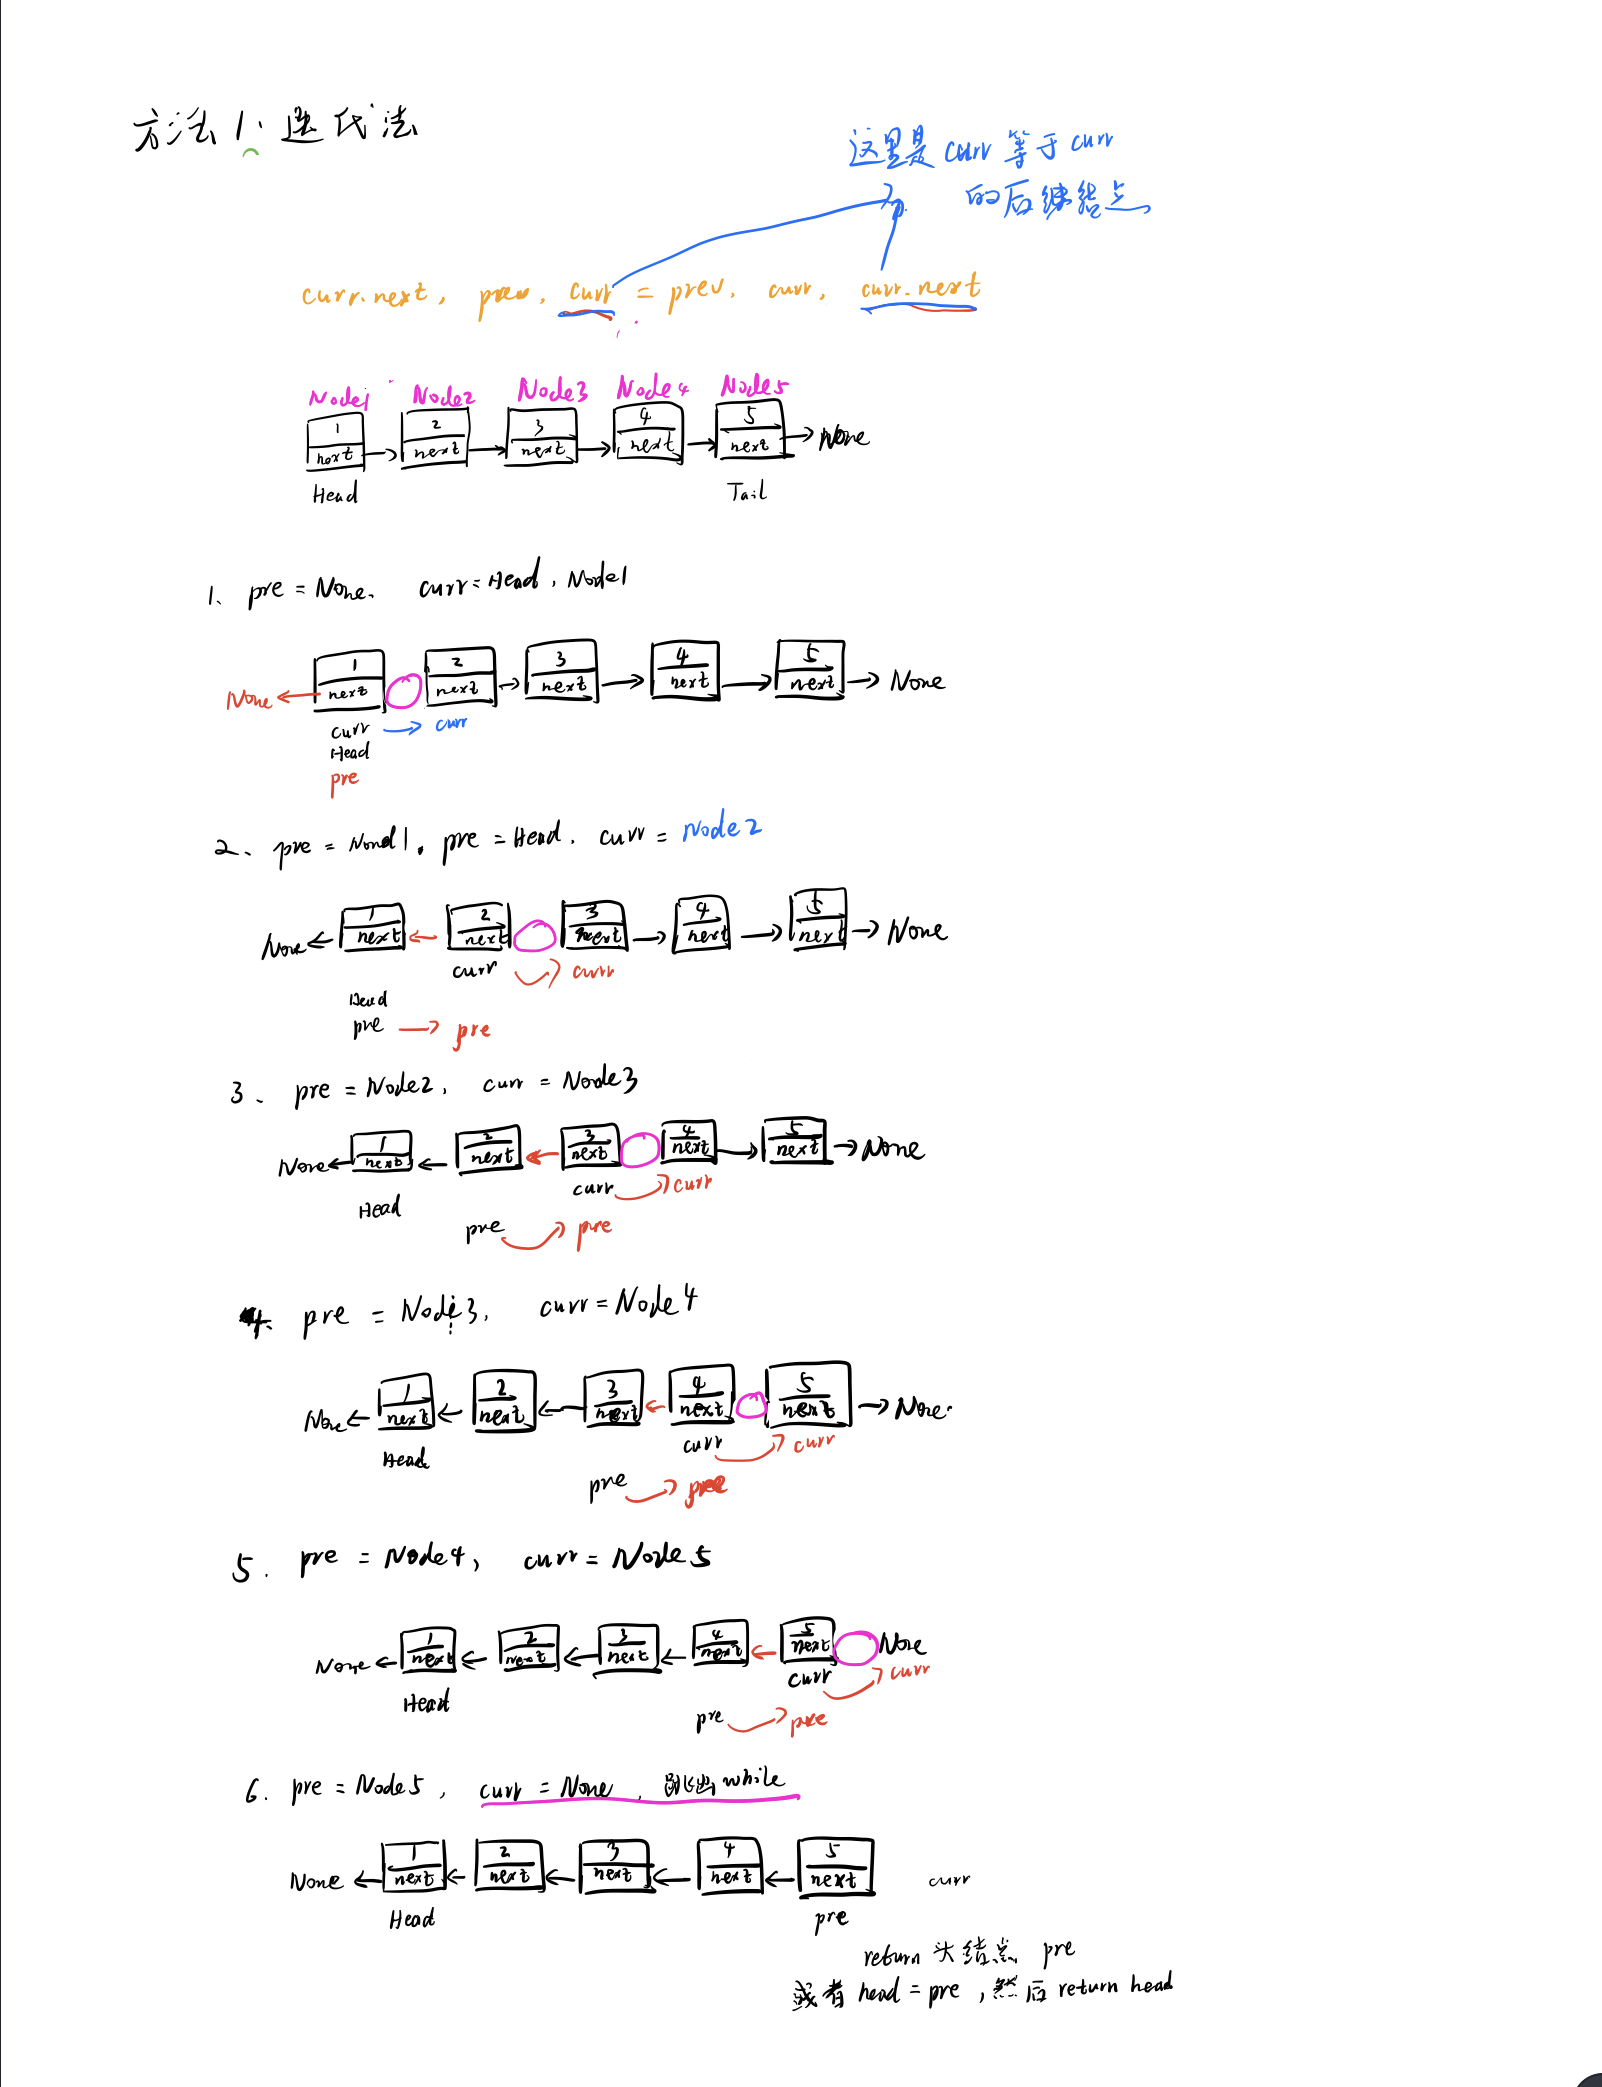 方法1. 迭代法
这里是 curr 等于 curr
的后继结点
curr.next, prev, curr = prev, curr, curr.next
Node1 Node2 Node3 Node4 Node5
1 2 3 4 5
next next next next next None
Head Tail
1、 pre = None. curr = Head, Node1
1 2 3 4 5
None next next next next next None
curr curr
Head
pre
2、 pre = Nond1, pre = Head. curr = Node2
1 2 3 4 5
None next next next next next None
curr curr
Head
pre pre
3、 pre = Node2, curr = Node3
1 2 3 4 5
None next next next next next None
curr curr
Head
pre pre
4. pre = Node3, curr = Node4
1 2 3 4 5
None next next next next next None
curr curr
Head
pre pre
5. pre = Node4, curr = Node5
1 2 3 4 5
None next next next next next None
curr curr
Head
pre pre
6. pre = Node5, curr = None, 跳出while
1 2 3 4 5
None next next next next next curr
Head pre
return 头结点 pre
或者 head = pre, 然后 return head